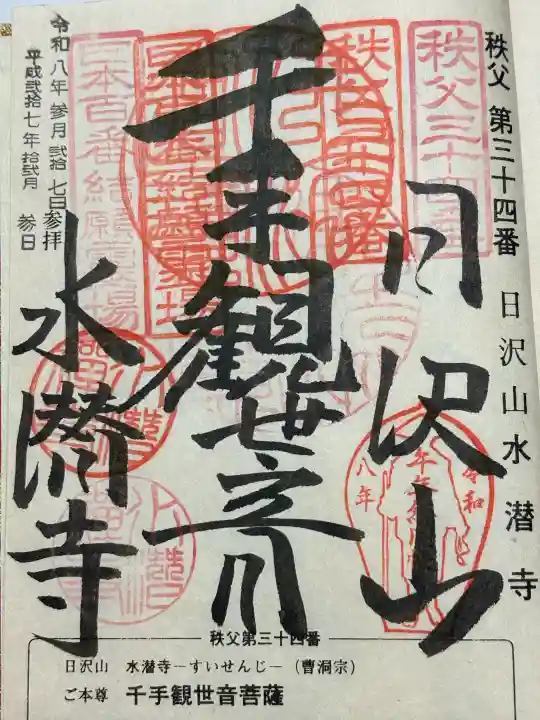 秩父 第三十四番 日沢山水潜寺
秩父三十四番
日沢山
千手観世音
水潜寺
日本百番結願霊場
令和
八年
令和八年参月弐拾七日参拝
平成弐拾七年拾弐月参日
秩父第三十四番
日沢山 水潜寺－すいせんじ－（曹洞宗）
ご本尊 千手観世音菩薩